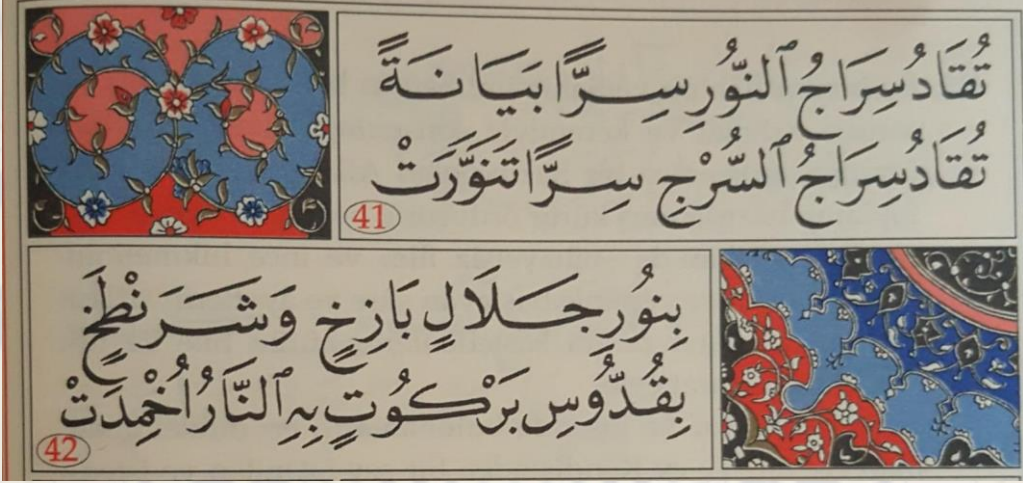 تُقَادُ سِرَاجُ ٱلنُّورِ سِرًّا بَيَانَةً
تُقَادُ سِرَاجُ ٱلسُّرْجِ سِرًّا تَنَوَّرَتْ
41
بِنُورِ جَلَالٍ بَازِخٍ وَشَرَنْطَخٍ
بِقُدُّوسِ بَرْكُوتٍ بِهِ ٱلنَّارُ اُخْمِدَتْ
42